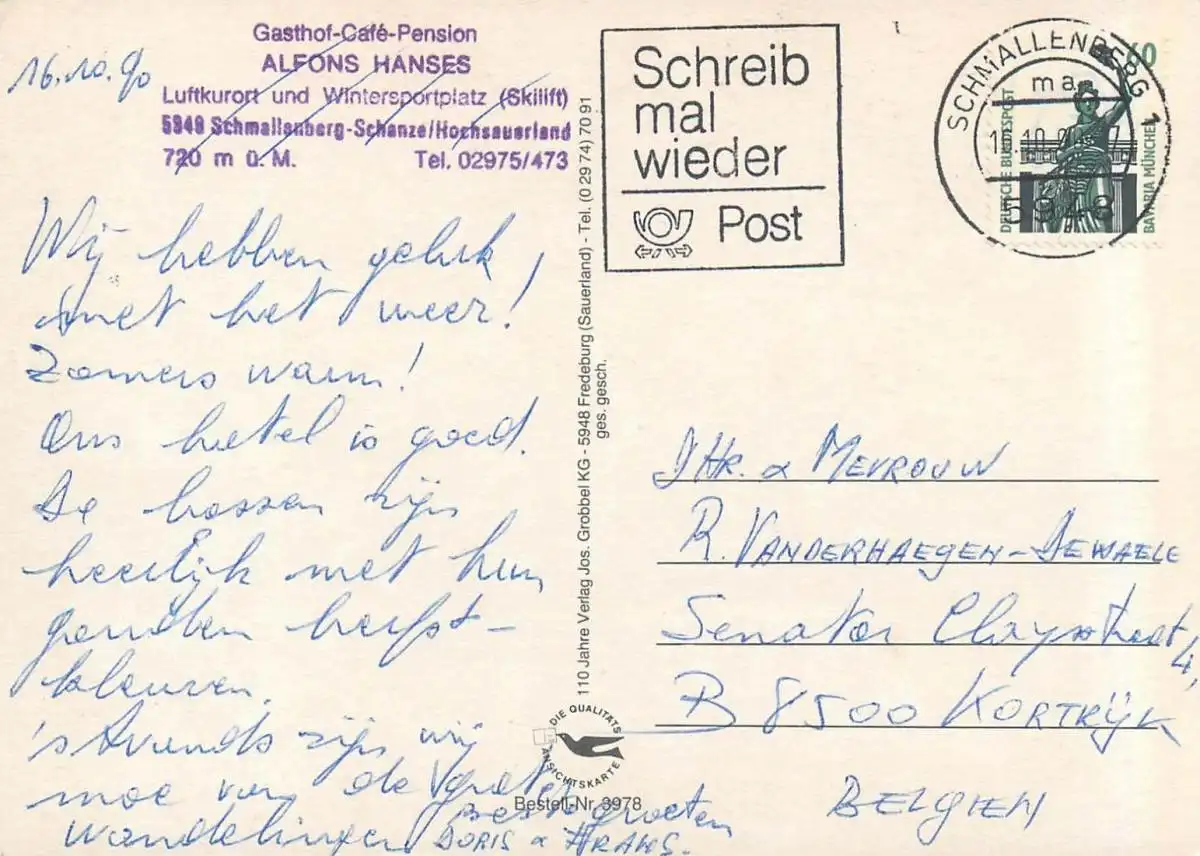 16.10.90
Gasthof-Café-Pension
ALFONS HANSES
Luftkurort und Wintersportplatz (Skilift)
5948 Schmallenberg-Schanze/Hochsauerland
720 m ü. M. Tel. 02975/473
Wij hebben geluk
met het weer!
Zomers warm!
Ons hotel is goed.
De bossen zijn
heerlijk met hun
gouden herfst-
kleuren.
's Avonds zijn wij
moe van de grote
wandelingen
Beste groeten
DORIS &
110 Jahre Verlag Jos. Grobbel KG - 5948 Fredeburg (Sauerland) - Tel. (0 29 74) 70 91
ges. gesch.
DIE QUALITÄTS
ANSICHTSKARTE
Bestell-Nr. 3978
Schreib
mal
wieder
Post
SCHMALLENBERG 1
5948
60
DEUTSCHE BUNDESPOST
BAVARIA MÜNCHEN
DHR. & MEVROUW
R. VANDERHAEGEN-DEWAELE
Senator Claysstraat
4,
B 8500 KORTRIJK
BELGIEN